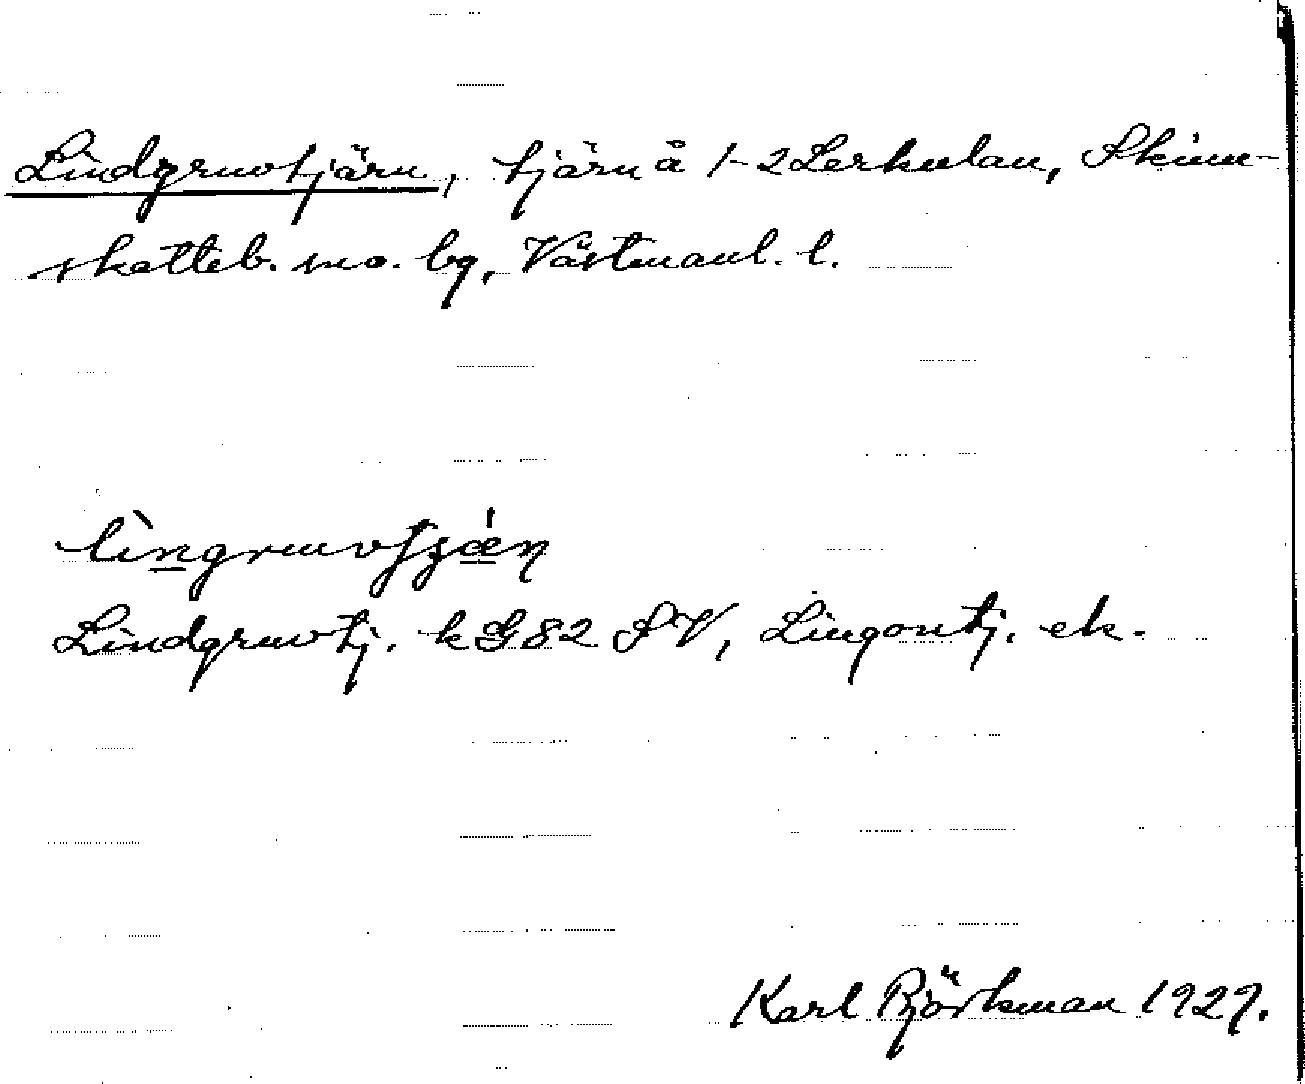 Lindgruvtjärn, tjärn å 1-2 Lerkulan, Skinn-
skatteb. sno. bg, Västmanl. l.
Lindgruvtj. k G82 SV, Lingontj. ek.
Karl Björkman 1929.